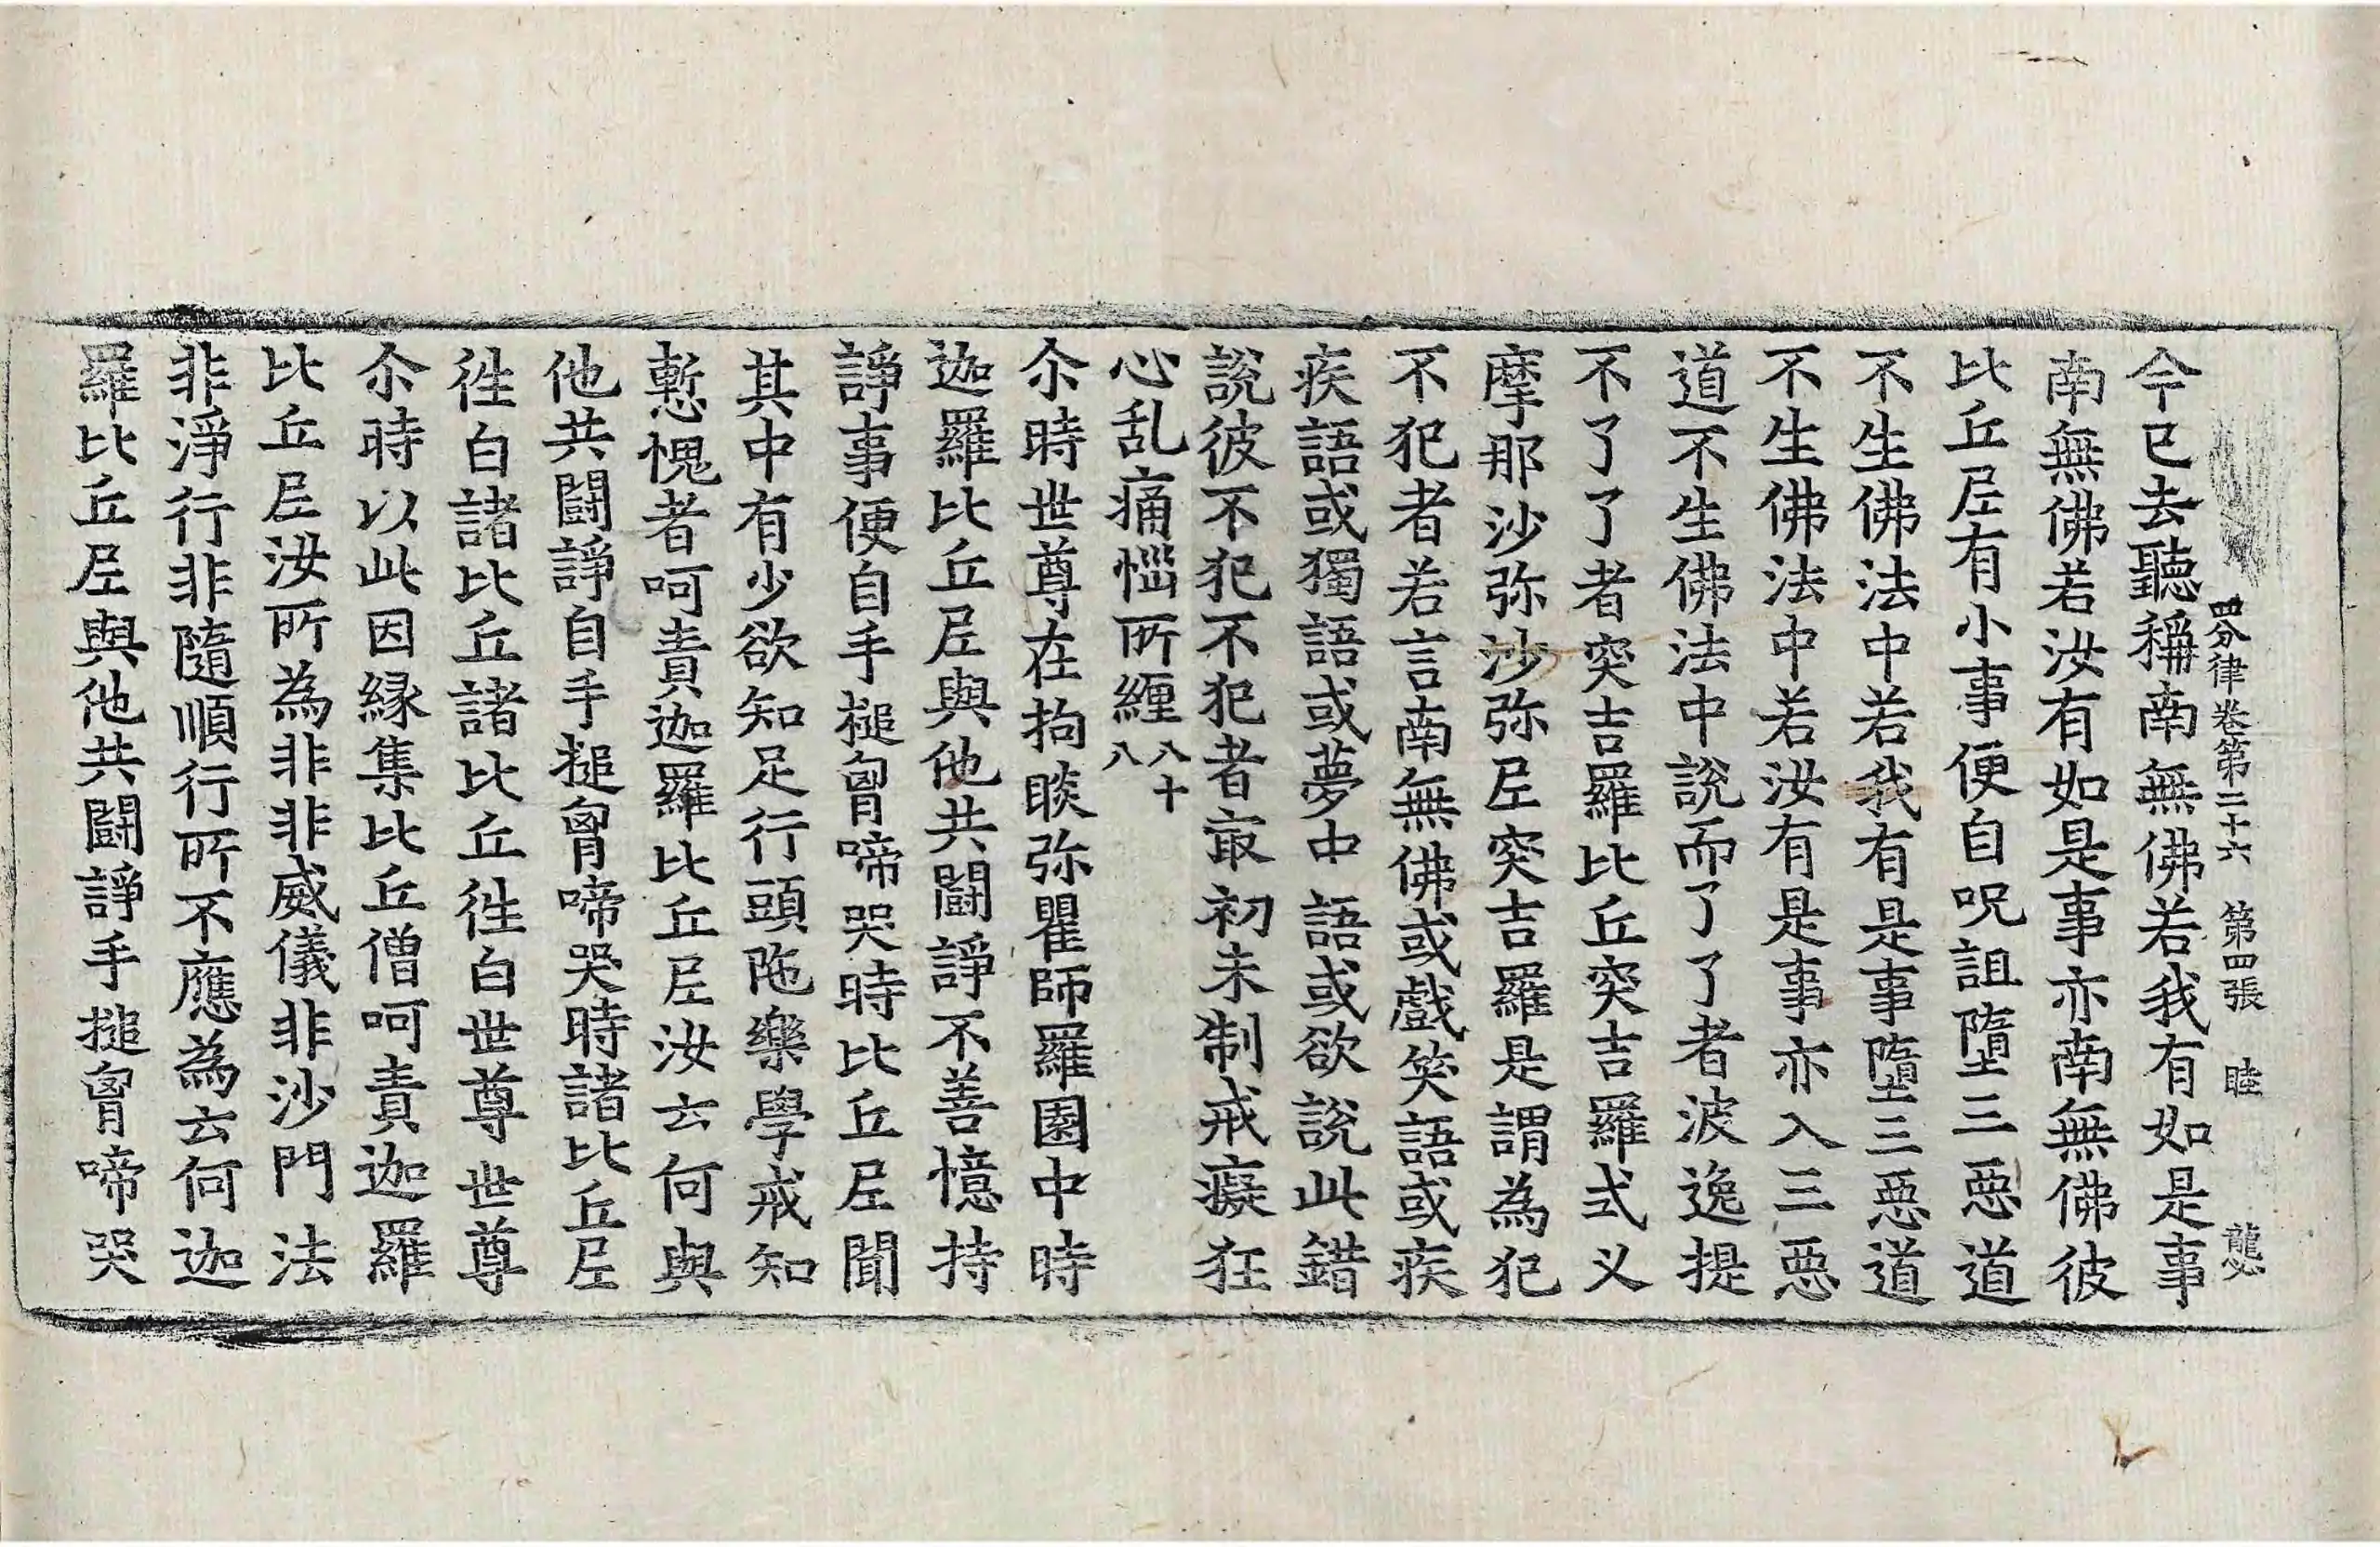 四分律卷第二十六 第四張 睦
今已去聽稱南無佛若我有如是事
南無佛若汝有如是事亦南無佛彼
比丘尼有小事便自呪詛墮三惡道
不生佛法中若我有是事墮三惡道
不生佛法中若汝有是事亦入三惡
道不生佛法中說而了了者波逸提
不了了者突吉羅比丘突吉羅式叉
摩那沙弥沙弥尼突吉羅是謂為犯
不犯者若言南無佛或戲笑語或疾
疾語或獨語或夢中語或欲說此錯
說彼不犯不犯者㝡初未制戒癡狂
心乱痛惱所纏八十八
尒時世尊在拘睒弥瞿師羅園中時
迦羅比丘尼與他共鬪諍不善憶持
諍事便自手搥胷啼哭時比丘尼聞
其中有少欲知足行頭陁樂學戒知
慙愧者呵責迦羅比丘尼汝云何與
他共鬪諍自手搥胷啼哭時諸比丘尼
徃白諸比丘諸比丘徃白世尊世尊
尒時以此因緣集比丘僧呵責迦羅
比丘尼汝所為非非威儀非沙門法
非淨行非隨順行所不應為云何迦
羅比丘尼與他共鬪諍手搥胷啼哭